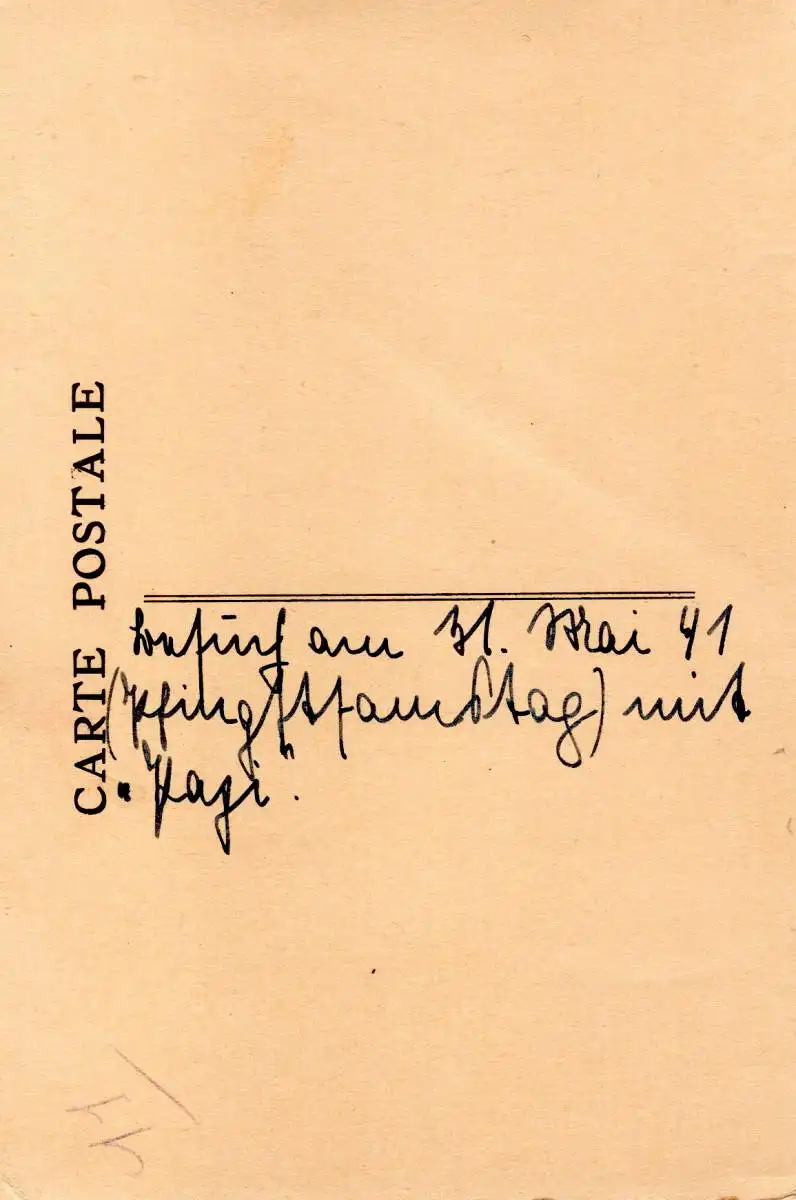 CARTE POSTALE
besucht am 31. Mai 41
(Pfingstsamstag) mit
"Papi".